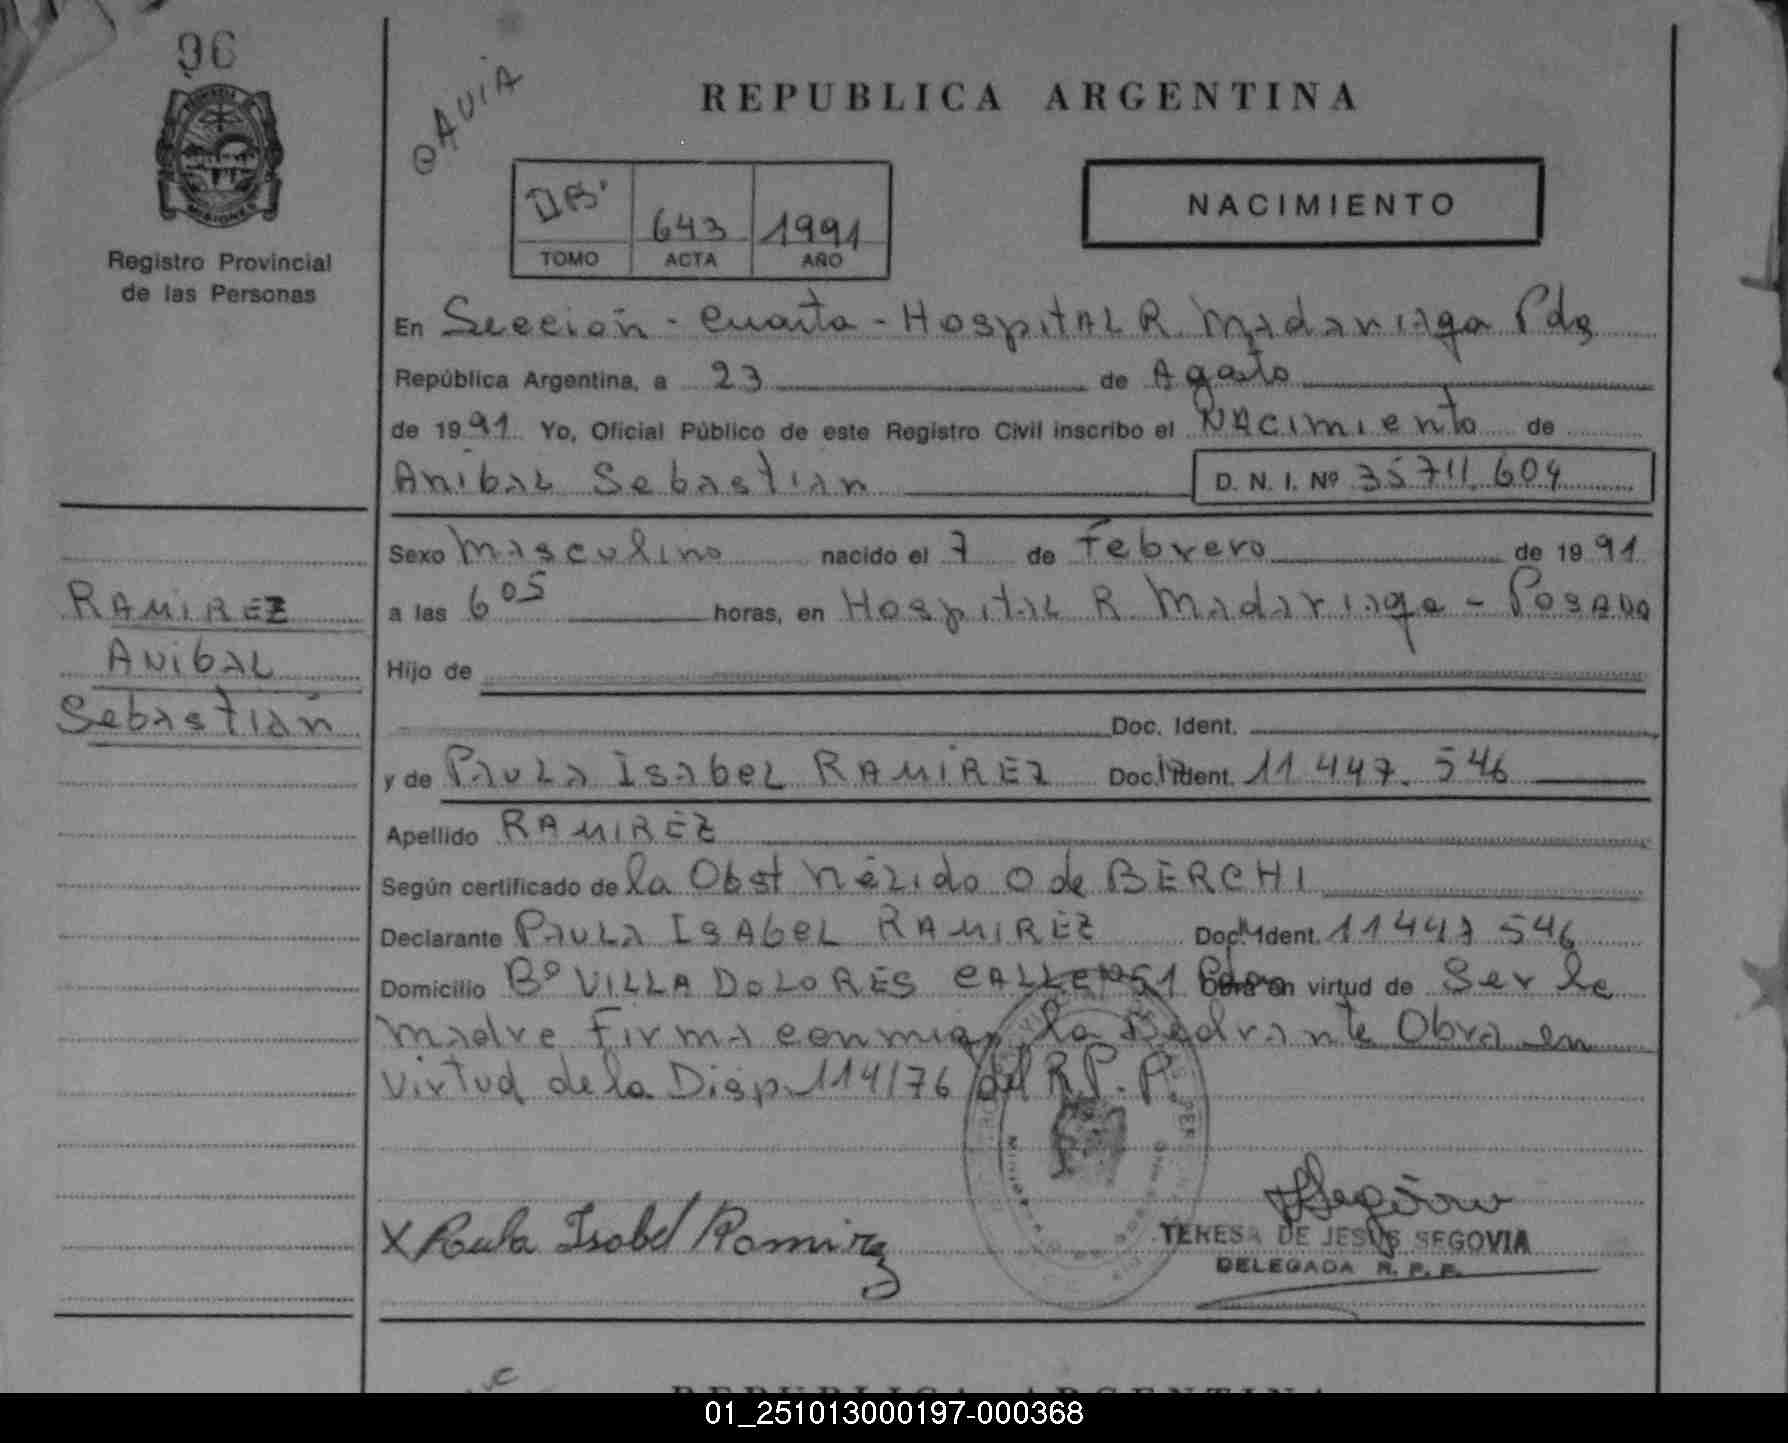 96
REPUBLICA ARGENTINA
MISIONES
Registro Provincial
de las Personas
643 1991
TOMO ACTA AÑO
NACIMIENTO
En Sección - Cuarta - Hospital R Madariaga Pdas
República Argentina, a 23 de Agosto
de 1991 Yo, Oficial Público de este Registro Civil inscribo el Nacimiento de
Anibal Sebastian D. N. I. Nº 35711.604
Sexo Masculino nacido el 7 de Febrero de 1991
a las 6 05 horas, en Hospital R Madariaga - Posadas
Hijo de
Doc. Ident.
y de Paula Isabel RAMIREZ Doc. Ident. 11 447. 546
Apellido RAMIREZ
Según certificado de la Obst Nélida O de BERCHI
Declarante Paula Isabel RAMIREZ Doc. Ident. 11447 546
Domicilio Bº VILLA DOLORES CALLE Nº 51 Pdas virtud de Ser la
madre Firma conmigo la Obra en
virtud de la Disp. 114/76 del R.P.P.
RAMIREZ
Anibal
Sebastián
X Paula Isabel Ramirez
TERESA DE JESUS SEGOVIA
DELEGADA R. P. P.
REPUBLICA ARGENTINA
01_251013000197-000368